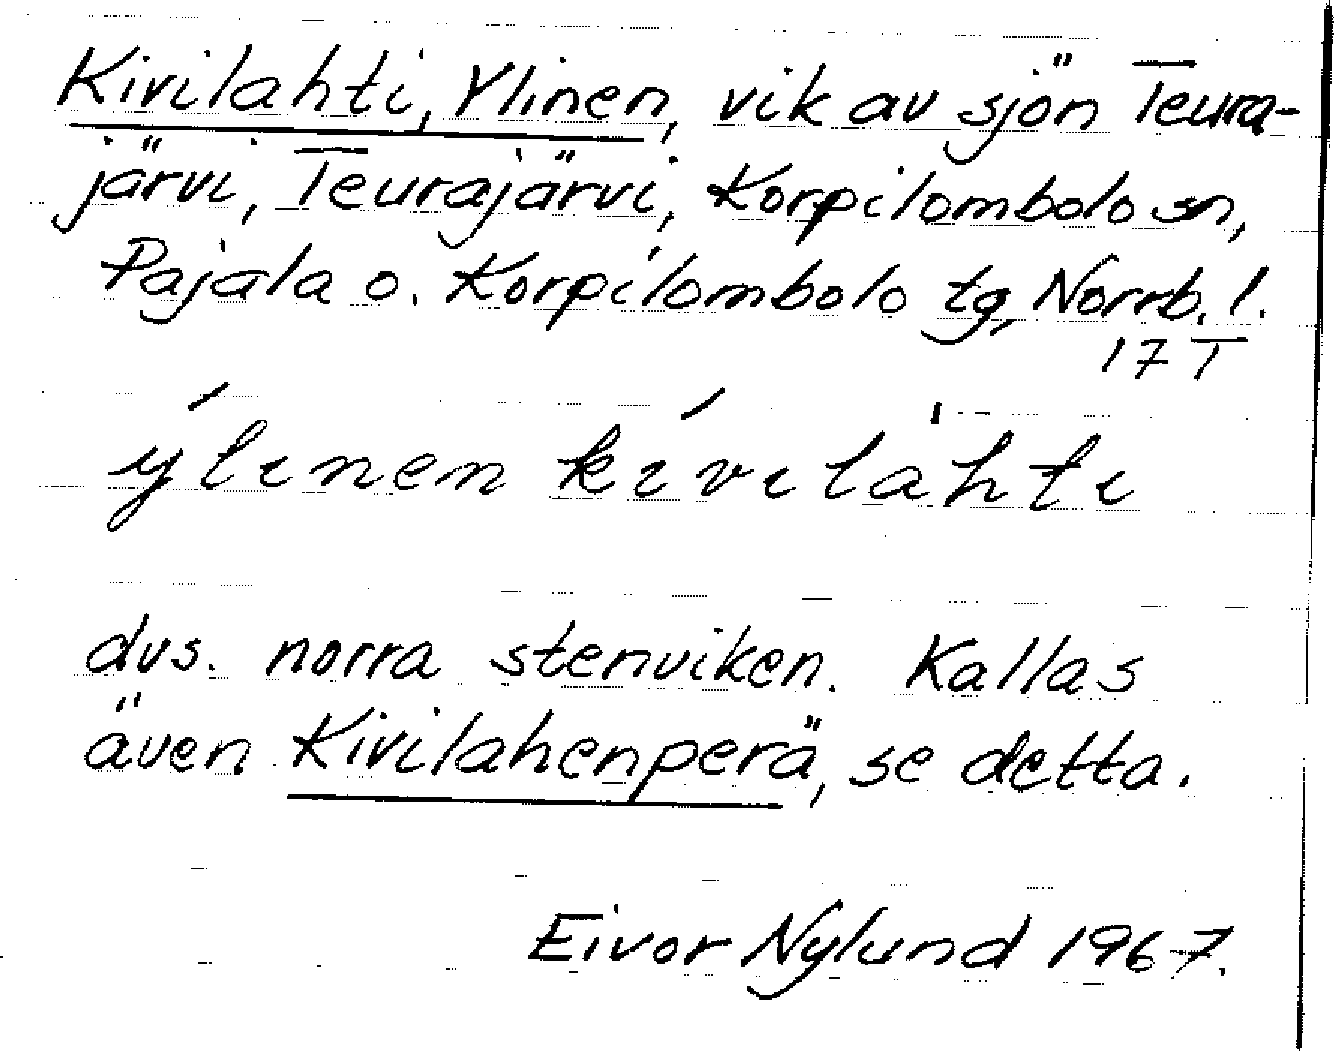 Kivilahti, Ylinen, vik av sjön Teura-
järvi, Teurajärvi, Korpilombolo sn,
Pajala o. Korpilombolo tg, Norrb. l.
17 T
ýlinen kívilàhti
dvs. norra stenviken. Kallas
även Kivilahenperä, se detta.
Eivor Nylund 1967.